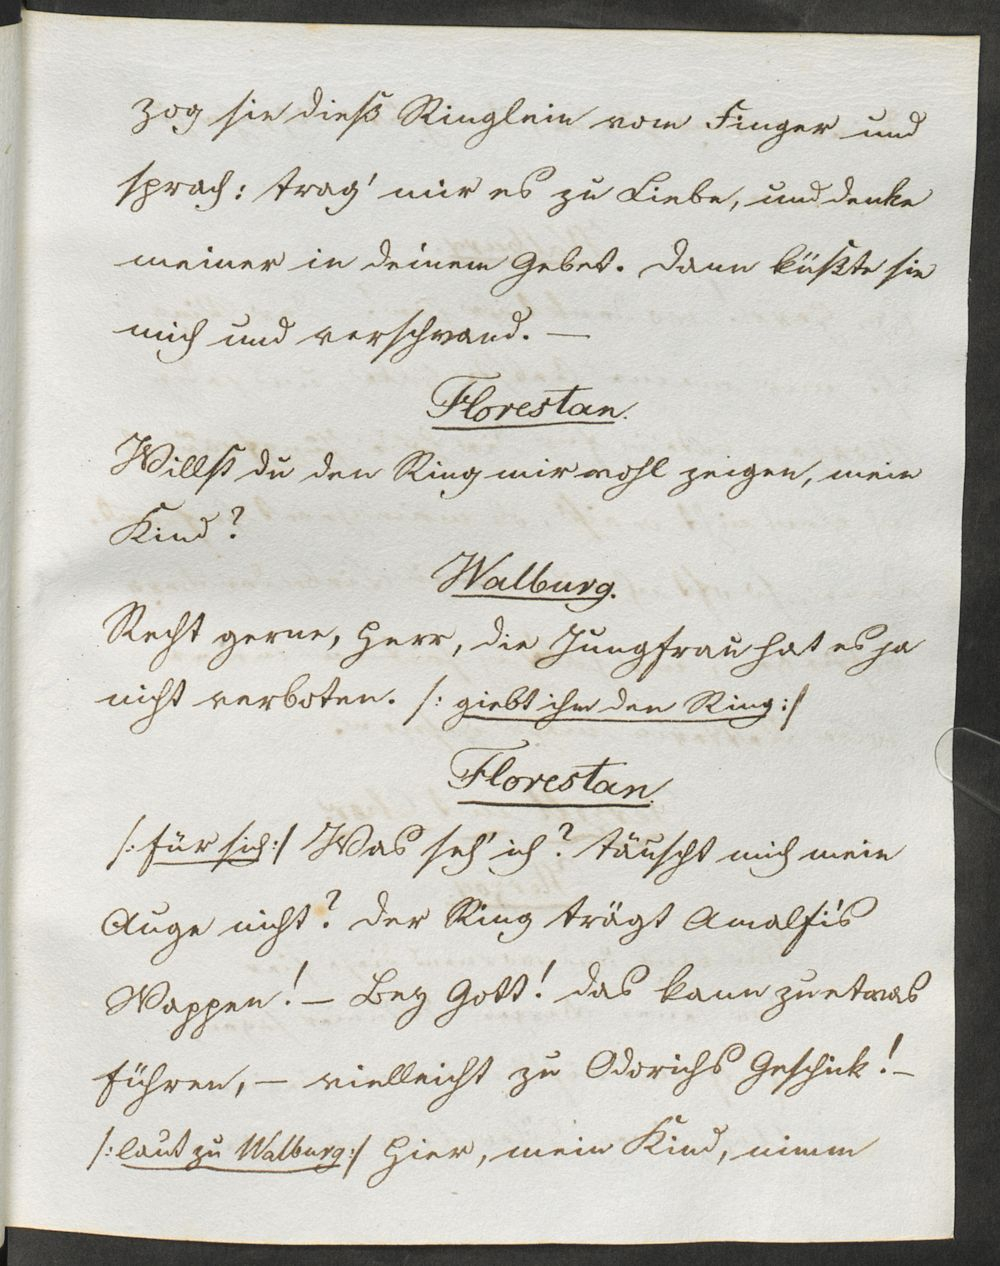 zog sie dieß Ringlein vom Finger und
sprach: trag' mir es zu Liebe, und denke
meiner in deinem Gebet. Dann küßte sie
mich und verschwand. —
Florestan.
Willst du den Ring mir wohl zeigen, mein
Kind?
Walburg.
Recht gerne, Herr, die Jungfrau hat es ja
nicht verboten. /: giebt ihm den Ring :/
Florestan.
/: für sich :/ Was seh' ich? täuscht mich mein
Auge nicht? der Ring trägt Amalfi's
Wappen! — Bey Gott! das kann zu etwas
führen, — vielleicht zu Odorichs Geschick! —
/: laut zu Walburg :/ Hier, mein Kind, nimm